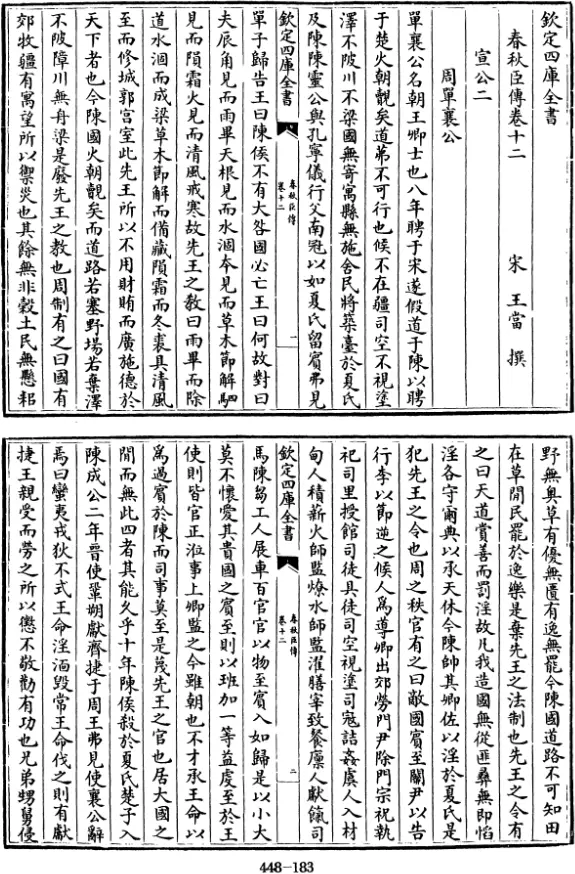 欽定四庫全書
春秋臣傳卷十二
宋 王當 撰
宣公二
周單襄公
單襄公名朝王卿士也八年聘于宋遂假道于陳以聘
于楚火朝覿矣道茀不可行也候不在疆司空不視塗
澤不陂川不梁國無寄寓縣無施舍民將築臺於夏氏
及陳陳靈公與孔寧儀行父南冠以如夏氏留賓弗見
欽定四庫全書
春秋臣傳
卷十二
一
單子歸告王曰陳侯不有大咎國必亡王曰何故對曰
夫辰角見而雨畢天根見而水涸本見而草木節解駟
見而隕霜火見而清風戒寒故先王之教曰雨畢而除
道水涸而成梁草木節解而備藏隕霜而冬裘具清風
至而修城郭宮室此先王所以不用財賄而廣施德於
天下者也今陳國火朝覿矣而道路若塞野場若棄澤
不陂障川無舟梁是廢先王之教也周制有之曰國有
郊牧疆有寓望所以禦災也其餘無非穀土民無懸耜
野無奧草有優無匱有逸無罷今陳國道路不可知田
在草間民罷於逸樂是棄先王之法制也先王之令有
之曰天道賞善而罰淫故凡我造國無從匪彞無即慆
淫各守爾典以承天休今陳帥其卿佐以淫於夏氏是
犯先王之令也周之秩官有之曰敵國賓至關尹以告
行李以節逆之候人為導卿出郊勞門尹除門宗祝執
祀司里授館司徒具徒司空視塗司寇詰姦虞人入材
甸人積薪火師監燎水師監濯膳宰致餐廩人獻餼司
欽定四庫全書
春秋臣傳
卷十二
二
馬陳芻工人展車百官官以物至賓入如歸是以小大
莫不懷愛其貴國之賓至則以班加一等益虔至於王
使則皆官正涖事上卿監之今雖朝也不才承王命以
為過賓於陳而司事莫至是蔑先王之官也居大國之
間而無此四者其能久乎十年陳侯殺於夏氏楚子入
陳成公二年晉使鞏朔獻齊捷于周王弗見使襄公辭
焉曰蠻夷戎狄不式王命淫湎毀常王命伐之則有獻
捷王親受而勞之所以懲不敬勸有功也兄弟甥舅侵
448-183